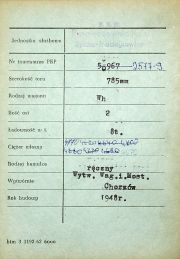 Jednostka służbowa
Nr inwentarza PKP 50967 9577-9
Szerokość toru 785mm
Rodzaj wagonu Wh
Ilość osi 2
Ładowność w t. 8t.
Ciężar własny
Rodzaj hamulca ręczny
Wytwórnia Wytw. Wag. i Most. Chorzów
Rok budowy 1948r.